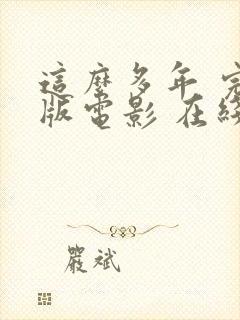 這麼多年
版電影 在
嚴斌